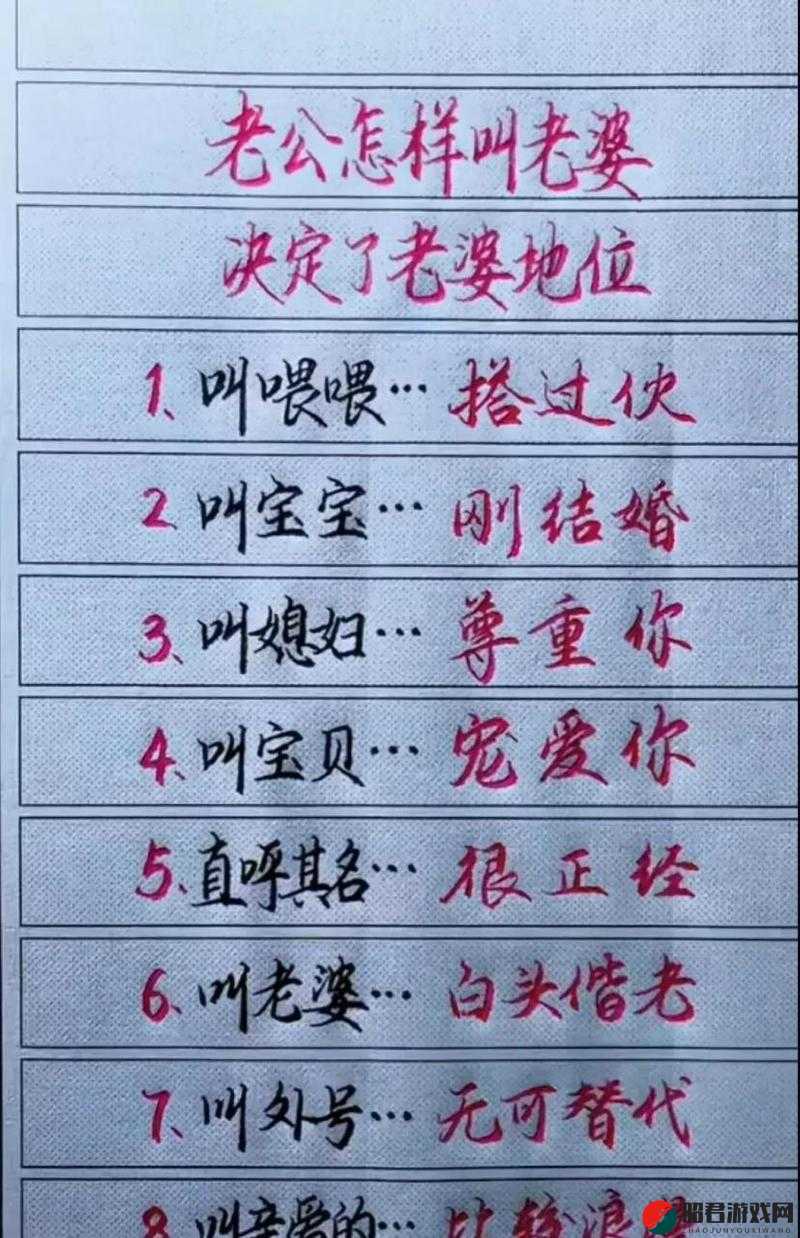 老公怎样叫老婆
决定了老婆地位
1、叫喂喂…搭过伙
2、叫宝宝…刚结婚
3、叫媳妇…尊重你
4、叫宝贝…宠爱你
5、直呼其名…很正经
6、叫老婆…白头偕老
7、叫外号…无可替代
8、叫亲爱的…比较浪
昭君游戏网
ZHAOJUNYOUXIWANG